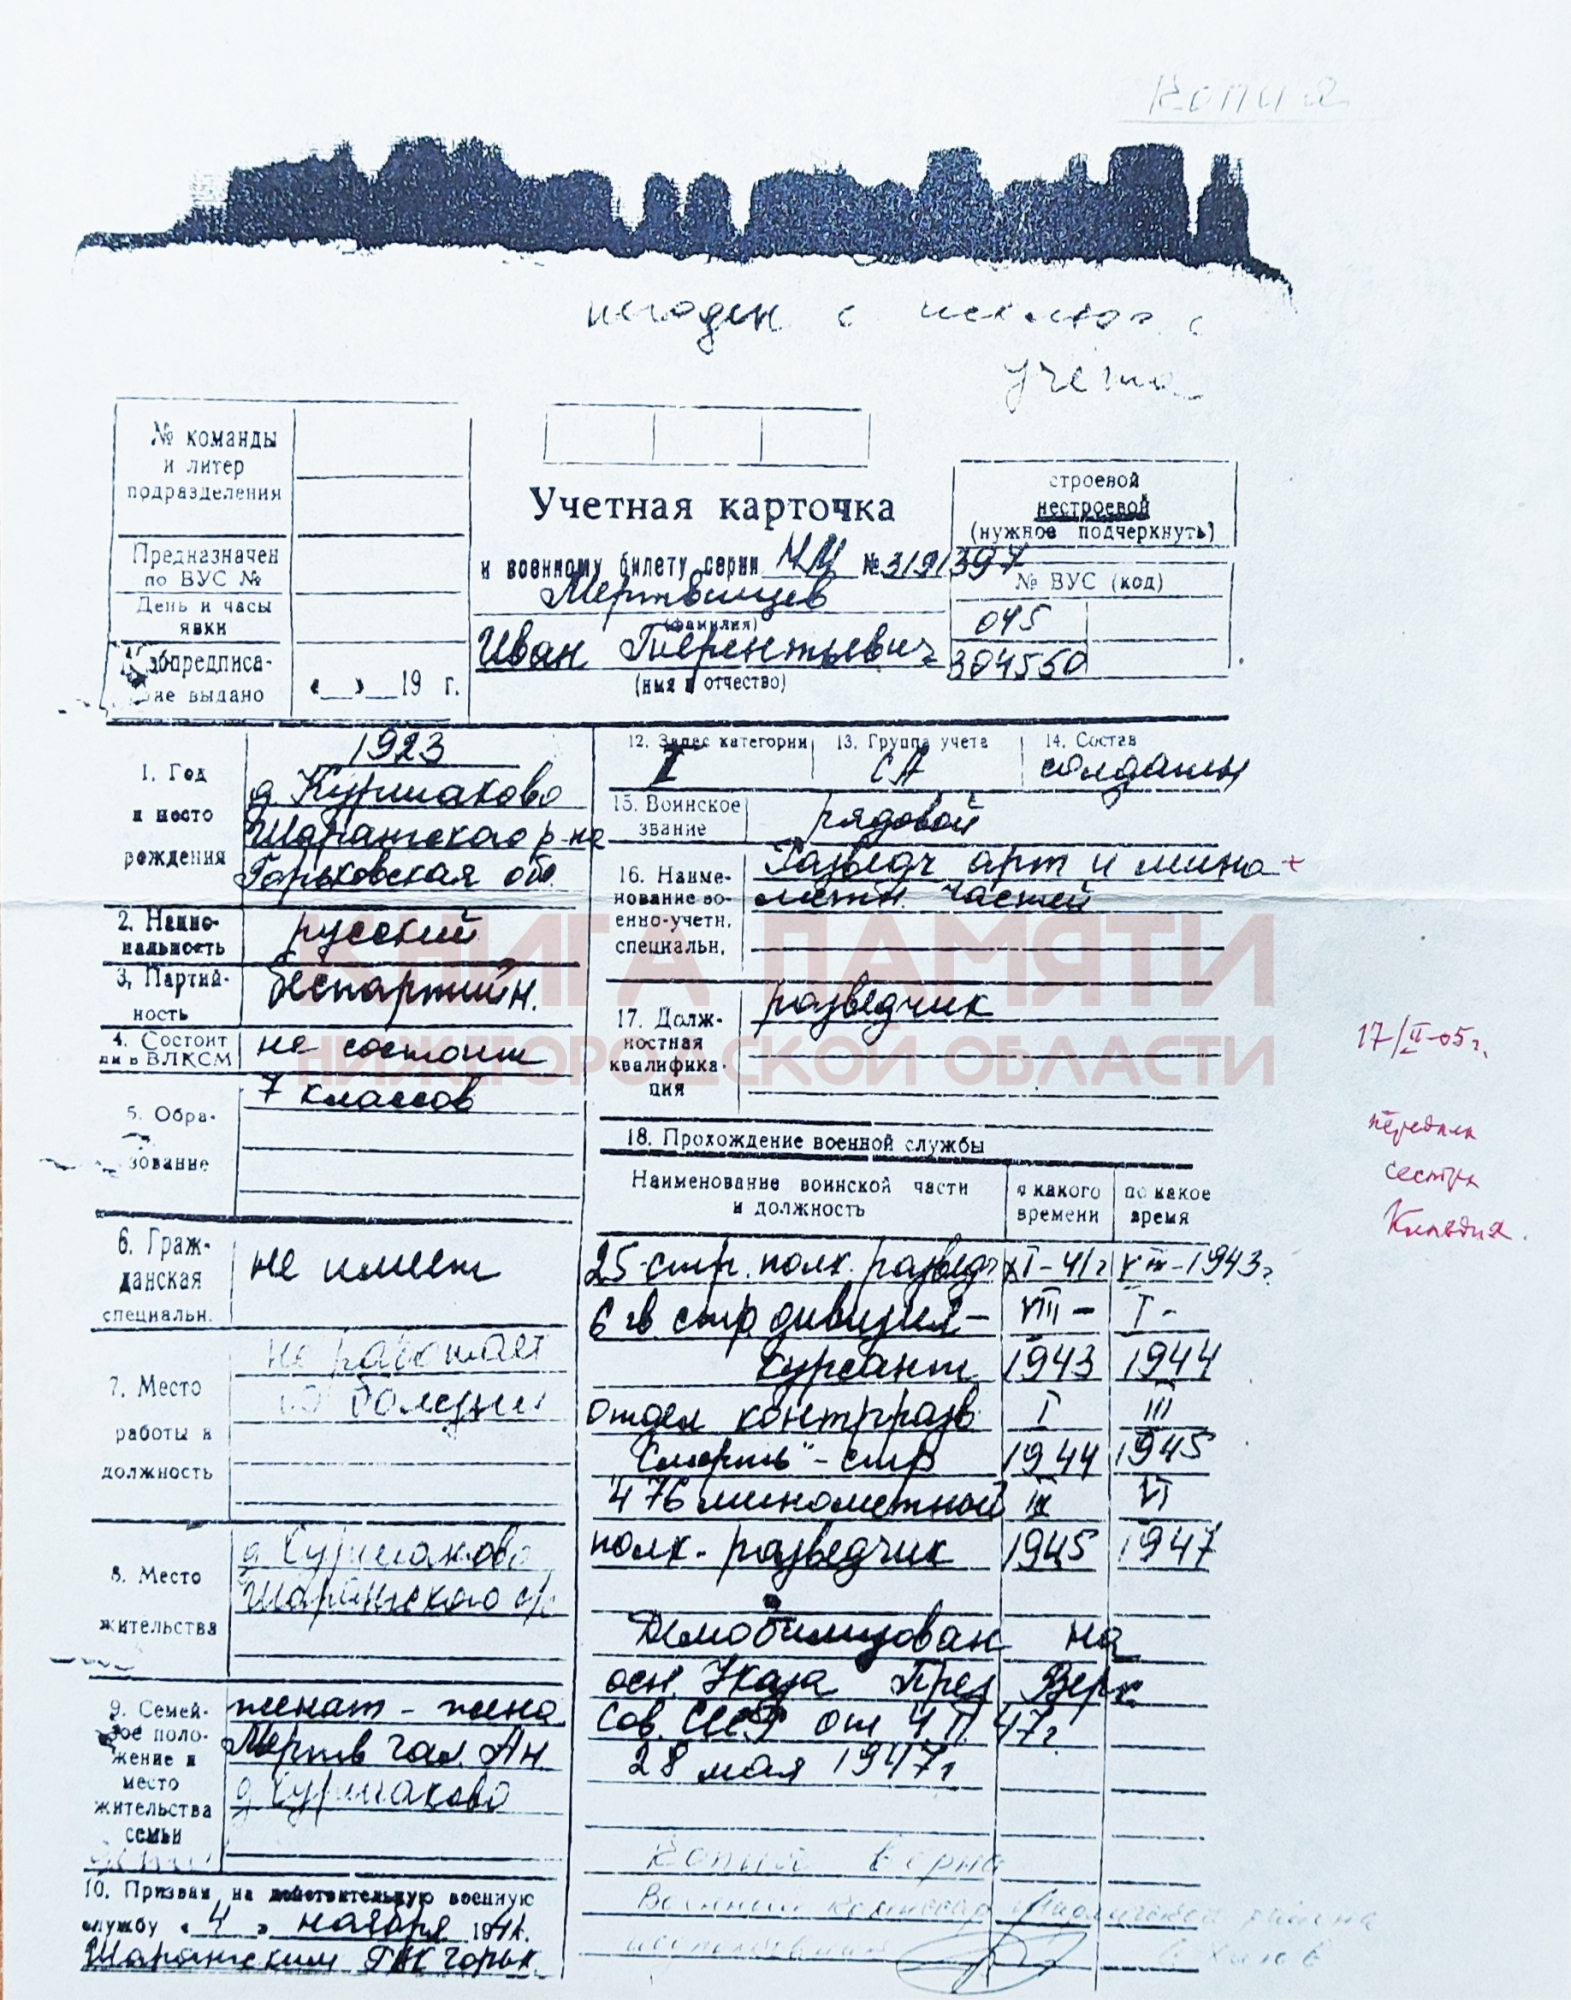 Копия
негоден с исключ. с
учёта
№ команды
и литер
подразделения
Предназначен
по ВУС №
День и часы
явки
Мобпредписа-
ние выдано
« » 19 г.
Учетная карточка
к военному билету серии НИ № 3191397
Мертвищев
(фамилия)
Иван Терентьевич
(имя и отчество)
строевой
нестроевой
(нужное подчеркнуть)
№ ВУС (код)
045
304550
1. Год
и место
рождения
1923
д. Куршаково
Шарангского р-на
Горьковская обл.
2. Нацио-
нальность
русский
3. Партий-
ность
беспартийн.
4. Состоит
ли в ВЛКСМ
не состоит
5. Обра-
зование
7 классов
6. Граж-
данская
специальн.
не имеет
7. Место
работы и
должность
не работает
по болезни
8. Место
жительства
д. Куршаково
Шарангского с/с
9. Семей-
ное поло-
жение и
место
жительства
семьи
женат - жена
Мертв Ан.
д. Куршаково
10. Призван на действительную военную
службу «4» ноября 1941.
Шарангским РВК горьк.
12. Запас категории
I
13. Группа учета
СА
14. Состав
солдаты
15. Воинское
звание
рядовой
16. Наиме-
нование во-
енно-учетн.
специальн.
Разведч арт и мино-
метн. частей
17. Долж-
ностная
квалифика-
ция
разведчик
18. Прохождение военной службы
Наименование воинской части
и должность
с какого
времени
по какое
время
25 стр. полк. разведч XI-41г VIII-1943г.
6 гв. стр. дивизия- VIII- I-
курсант 1943 1944
отдел контрразв. I III
"Смерть" - стр 1944 1945
476 минометной III VI
полк. - разведчик 1945 1947
Демобилизован на
осн. Указа През Верх.
Сов. СССР от 4 II 47г.
28 мая 1947г
Копия верна
Военный комиссар района
17/II-05г.
передала
сестра
Клавдия.
КНИГА ПАМЯТИ
НИЖЕГОРОДСКОЙ ОБЛАСТИ